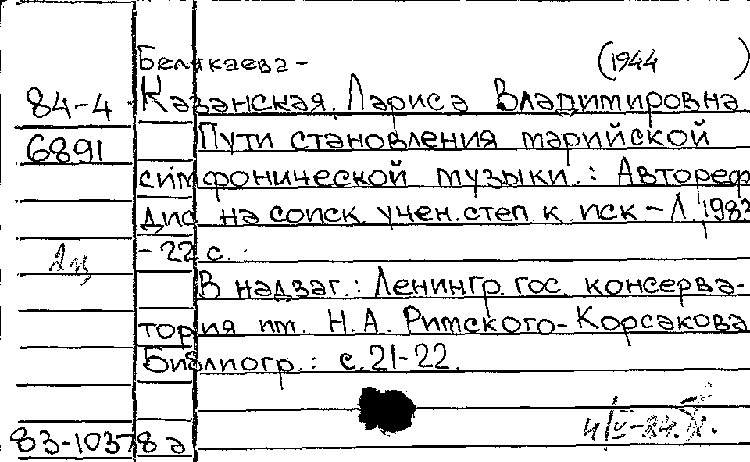 Белякаева- (1944 )
84-4 Казанская Лариса Владимировна
6891 Пути становления марийской
симфонической музыки.: Автореф
дис на соиск учен. степ к иск - Л. 1983
2 ц - 22 с.
В надзаг.: Ленингр. гос. консерва-
тория им. Н.А. Римского-Корсакова
Библиогр.: с. 21-22.
83-10378 а